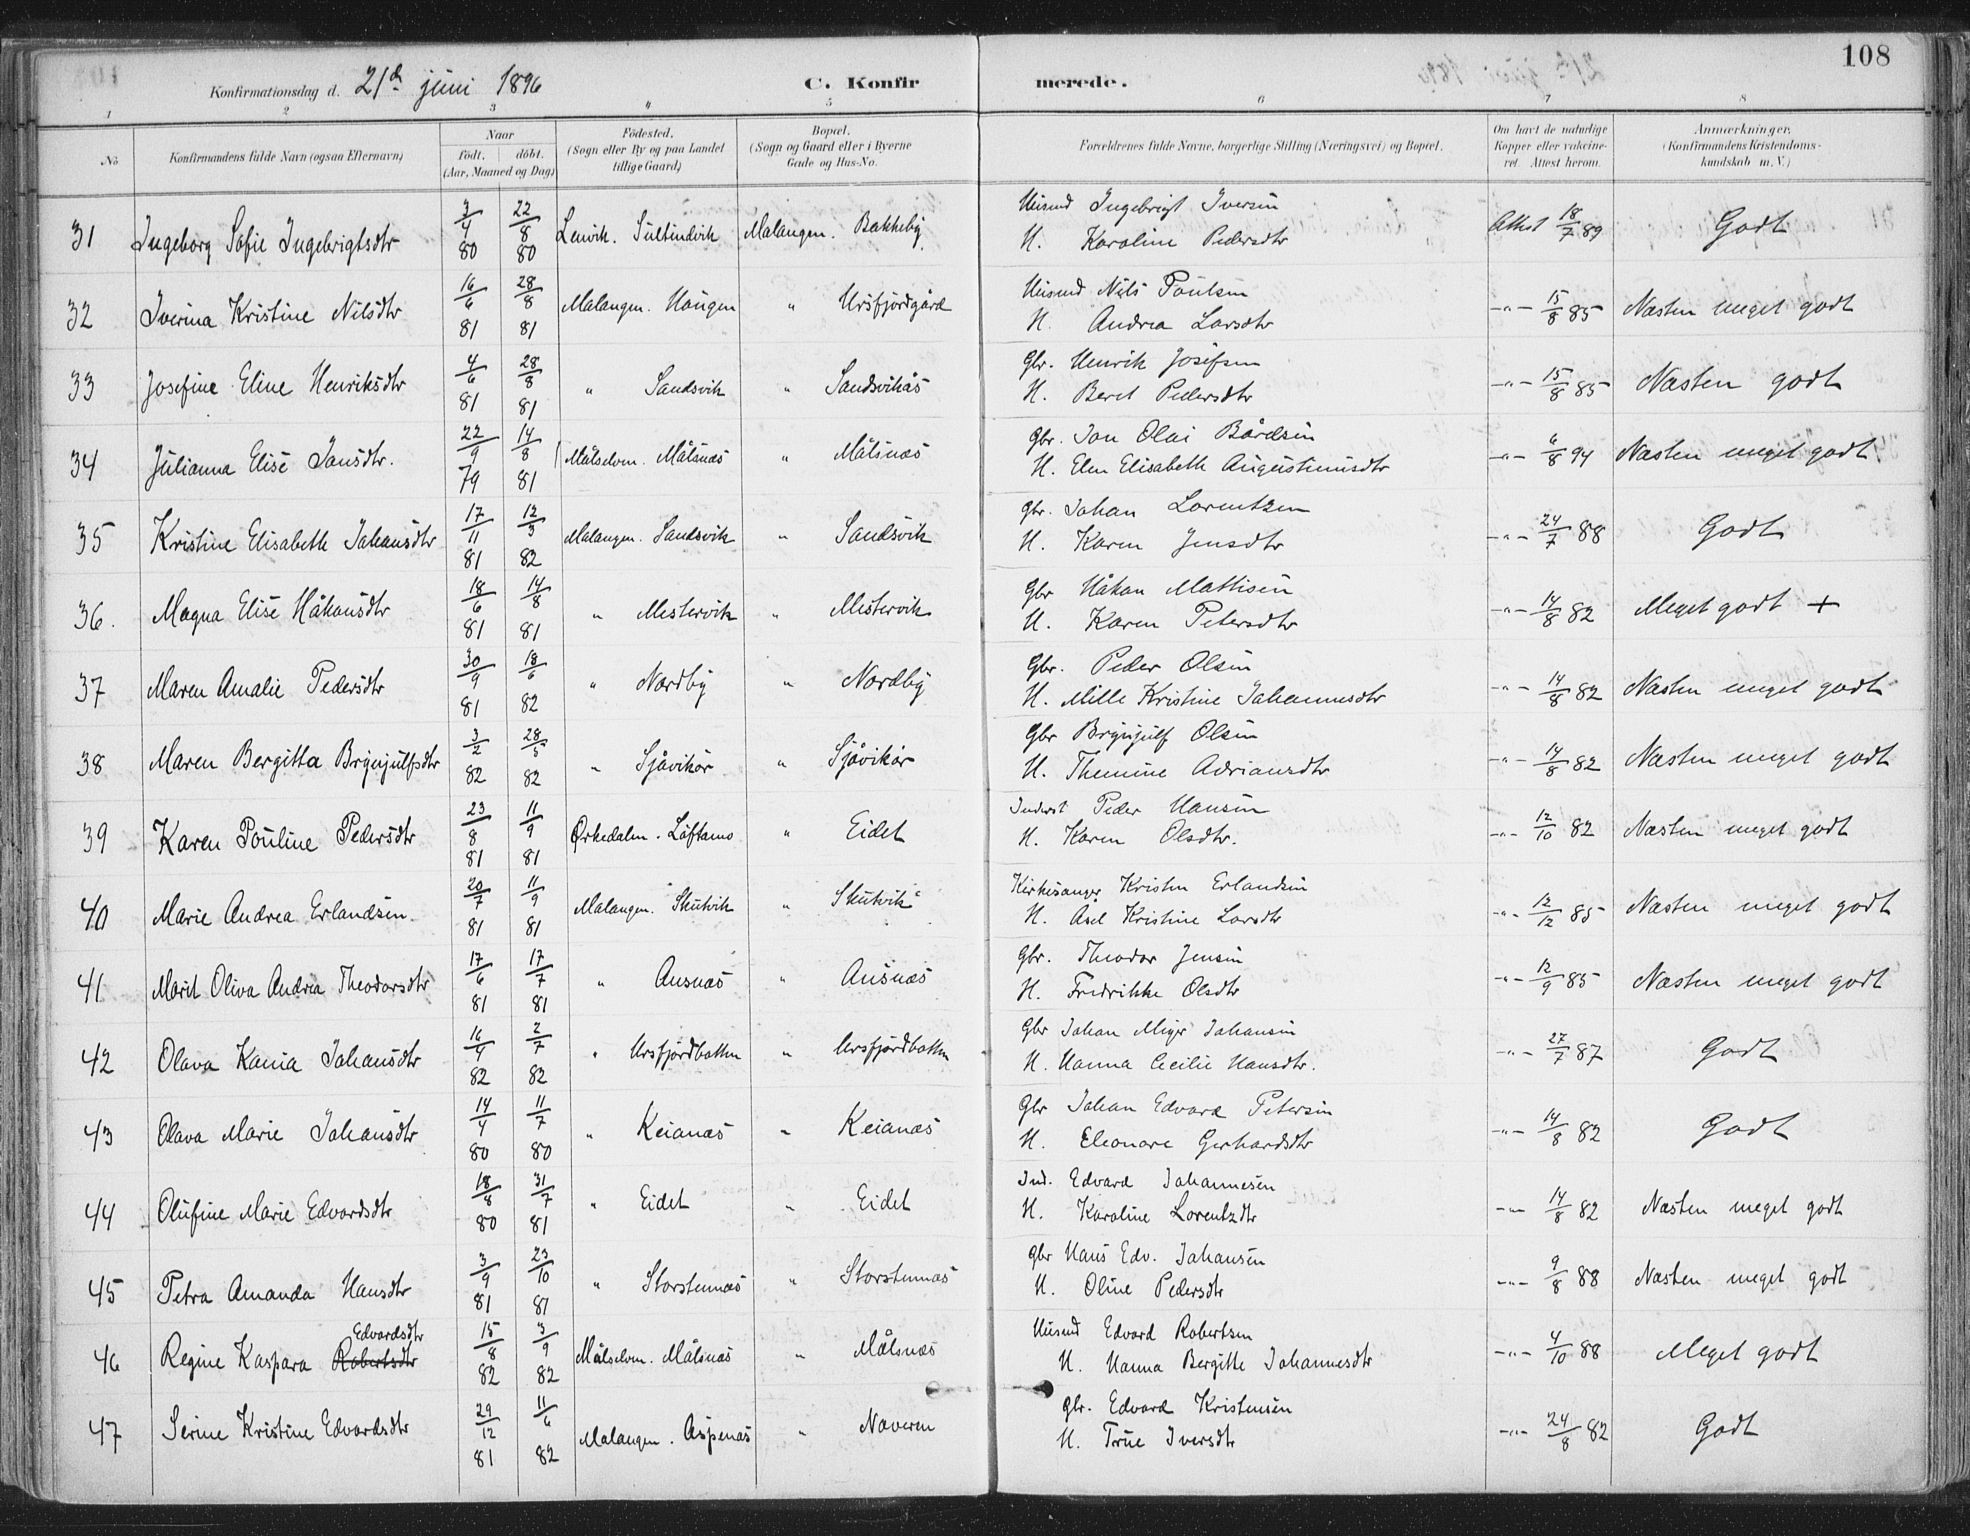 108
Konfirmationsdag d. 21de juni 1896 C. Konfirmerede.
1 2 3 " 5 6 7 8
No
Konfirmandens fulde Navn (ogsaa Efternavn)
Naar
födt. döbt.
(Aar, Maaned og Dag)
Födested.
(Sogn eller By og paa Landet
tillige Gaard)
Bopæl.
(Sogn og Gaard eller i Byerne
Gade og Hus-No.
Forældrenes fulde Navne, borgerlige Stilling (Næringsvei) og Bopæl.
Om havt de naturlige
Kopper eller vakcine-
ret. Attest herom.
Anmærkninger.
(Konfirmandens Kristendoms-
kundskab m. V.)
31 Ingeborg Sofie Ingebrigtsdtr 3/4 80 22/8 80 Lenvik. Sultindvik Malangen. Bakkeby Husmd Ingebrigt Iversen
H. Karoline Pedersdtr Attest 18/7 89 Godt
32 Iverina Kristine Nilsdtr 16/6 81 28/8 81 Malangen. Haugen " Ursfjordgård Husmd Nils Poulsen
H. Andrea Larsdtr -"- 15/8 85 Næsten meget godt
33 Josefine Eline Henriksdtr 4/6 81 28/8 81 " Sandsvik " Sandsvikås Gbr. Henrik Josefsen
H. Beret Pedersdtr -"- 15/8 85 Næsten godt
34 Julianna Elise Jansdtr. 22/9 79 14/8 81 Målselven. Målsnæs " Målsnæs Gbr. Jan Olai Bårdsen
H. Elen Elisabeth Augustinusdtr -"- 6/8 94 Næsten meget godt
35 Kristine Elisabeth Johansdtr 17/11 81 12/3 82 Malangen. Sandsvik " Sandsvik Gbr. Johan Lorentzen
H. Karen Jensdtr -"- 24/7 88 Godt
36. Magna Elise Håkonsdtr 18/6 81 14/8 81 " Mestervik " Mestervik Gbr Håkon Mathisen
H. Karen Petersdtr -"- 14/8 82 Meget godt +
37 Maren Amalie Pedersdtr 30/9 81 18/6 82 " Nordby " Nordby Gbr. Peder Olsen
H. Mille Kristine Johannesdtr -"- 14/8 82 Næsten meget godt
38 Maren Bergitta Brynjulfsdtr 3/2 82 28/5 82 " Sjåvikør " Sjåvikør Gbr Brynjulf Olsen
H. Themine Adriansdtr -"- 14/8 82 Næsten meget godt
39 Karen Pouline Pedersdtr 23/8 81 11/9 81 Ørkedalen. Loftamo " Eidet Inderst Peder Hansen
H. Karen Olsdtr. -"- 12/10 82 Næsten meget godt
40 Marie Andrea Erlandsen. 20/7 81 11/9 81 Malangen. Skutvik " Skutvik Kirkesanger Kristen Erlandsen
H. Åsel Kristine Larsdtr -"- 12/12 85 Næsten meget godt
41 Marit Oliva Andrea Theodorsdtr 17/6 81 17/7 81 " Ansnæs " Ansnæs Gbr. Theodor Jensen
H. Fredrikke Olsdtr -"- 12/9 85 Næsten meget godt
42 Olava Kania Johansdtr 16/4 82 2/7 82 " Ursfjordbotten " Ursfjordbotten Gbr Johan Meyer Johansen
H. Hanna Cecilie Hansdtr. -"- 27/7 87 Godt
43 Olava Marie Johansdtr 14/4 80 11/7 80 " Keianæs " Keianæs Gbr Johan Edvard Petersen
H. Eleonore Gerhardsdtr -"- 14/8 82 Godt
44 Olufine Marie Edvardsdtr 18/8 80 31/7 81 " Eidet " Eidet Ind. Edvard Johannesen
H. Karoline Lorentzdtr -"- 14/8 82 Næsten meget godt
45 Petra Amanda Hansdtr 3/9 81 23/10 81 " Storstennæs " Storstennæs Gbr Hans Edv. Johansen
H. Oline Pedersdtr -"- 9/8 88 Næsten meget godt
46 Regine Kaspara Robertsdtr Edvardsdtr 15/8 82 3/9 82 Målselven. Målsnæs " Målsnæs Husmd Edvard Robertsen
H. Hanna Bergitte Johannesdtr -"- 4/10 88 Meget godt
47 Serine Kristine Edvardsdtr 29/12 81 11/6 82 Malangen. Aspenæs " Naveren Gbr. Edvard Kristensen
H. True Iversdtr -"- 24/8 82 Godt